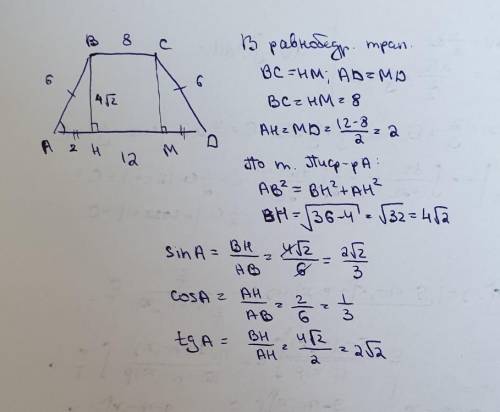 B 8 C
6 6
4√2
A 2 H 12 M D
В равнобедр. трап.
BC = HM; AD = MD
BC = HM = 8
AH = MD = (12-8)/2 = 2
По т. Пиф-рА:
AB² = BH² + AH²
BH = √(36-4) = √32 = 4√2
sin A = BH/HB = 4√2/6 = 2√2/3
cos A = AH/AB = 2/6 = 1/3
tg A = BH/AH = 4√2/2 = 2√2